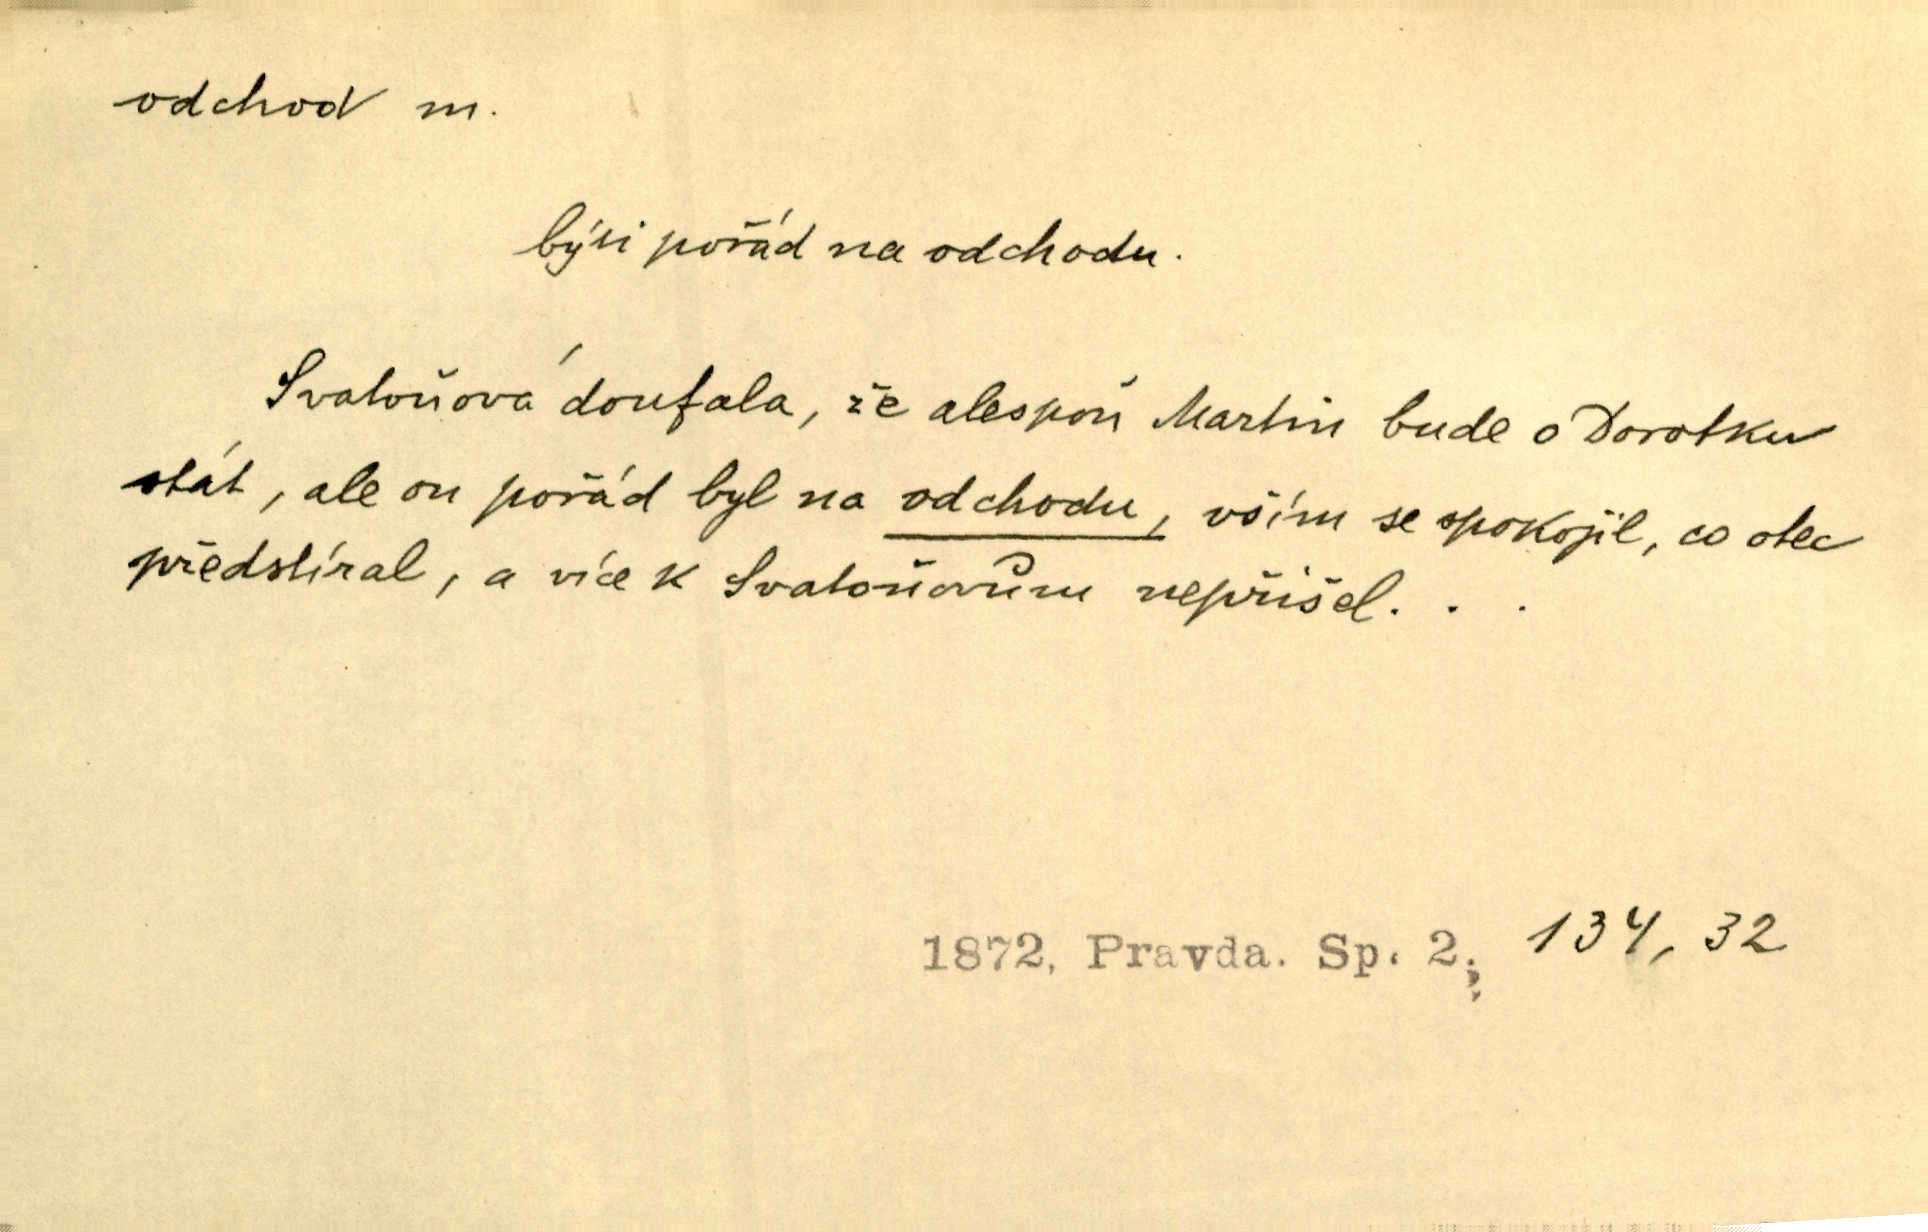 odchod m.
býti pořád na odchodu.
Svatoňová doufala, že alespoň Martin bude o Dorotku
stát, ale on pořád byl na odchodu, vším se spokojil, co otec
předstíral, a více k Svatoňovům nepřišel. . .
1872, Pravda. Sp. 2., 134, 32